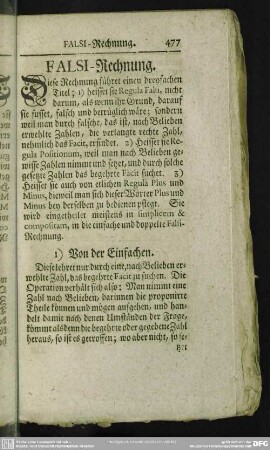 FALSI-Rechnung. 477
FALSI-Rechnung.
Diese Rechnung führet einen dreyfachen
Titel; 1) heisset sie Regula Falsi, nicht
darum, als wenn ihr Grund, darauf
sie fusset, falsch und betrüglich wäre; sondern
weil man durch falsche, das ist, nach Belieben
erwehlte Zahlen, die verlangte rechte Zahl,
nehmlich das Facit, erfindet. 2) Heisset sie Re-
gula Positionum, weil man nach Belieben ge-
wisse Zahlen nimmt und setzet, und durch solche
gesetzte Zahlen das begehrte Facit suchet. 3)
Heisset sie auch von etlichen Regula Plus und
Minus, die weil man sich dieser Wörter Plus und
Minus bey derselben zu bedienen pflegt. Sie
wird eingetheilet meistens in simplicem &
compositam, in die einfache und doppelte Falsi-
Rechnung.
1) Von der Einfachen.
Diese lehret nur durch eine, nach Belieben er-
wehlte Zahl, das begehrte Facit zu suchen. Die
Operation verhält sich also: Man nimmt eine
Zahl nach Belieben, darinnen die proponirte
Theile können und mögen aufgehen, und han-
delt damit nach denen Umständen der Frage,
kömmt alsdenn die begehrte oder gegebene Zahl
heraus, so ist es getroffen; wo aber nicht, so se-
tzet